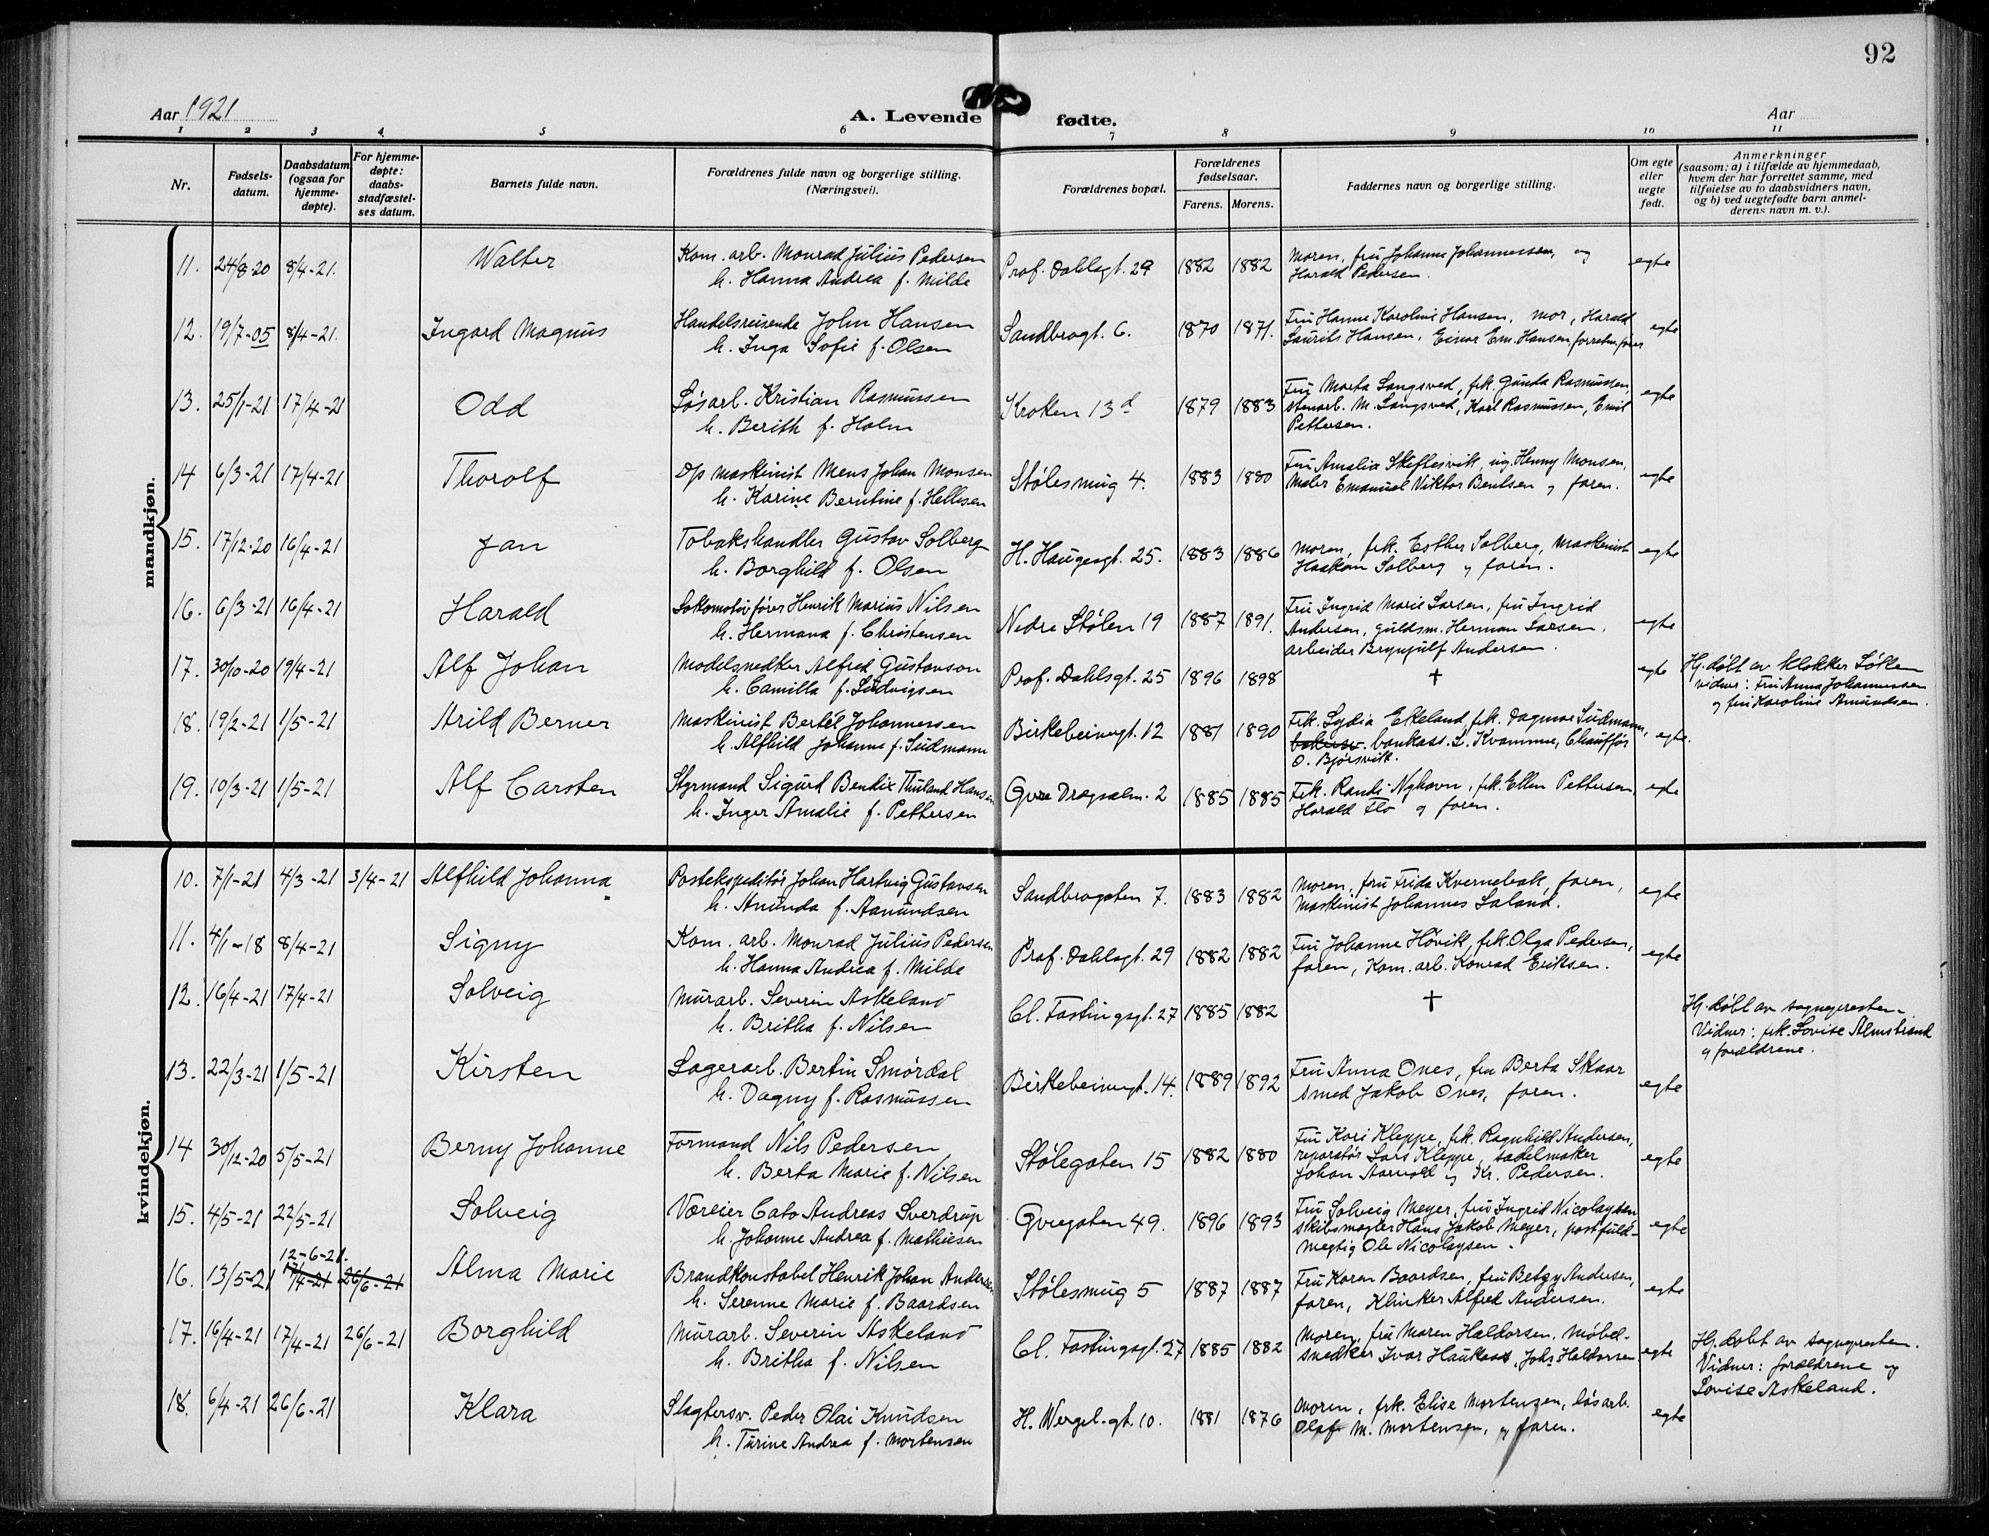 92
Aar 1921
A. Levende fødte.
Aar
1 2 3 4 5 6 7 8 9 10 11
Nr.
Fødsels-
datum.
Daabsdatum
(ogsaa for
hjemme-
døpte).
For hjemme-
døpte:
daabs-
stadfæstel-
ses datum.
Barnets fulde navn.
Forældrenes fulde navn og borgerlige stilling.
(Næringsvei).
Forældrenes bopæl.
Forældrenes
fødselsaar.
Farens. Morens.
Faddernes navn og borgerlige stilling.
Om egte
eller
uegte
født.
Anmerkninger
(saasom: a) i tilfælde av hjemmedaab,
hvem der har forrettet samme, med
tilføielse av to daabsvidners navn,
og b) ved uegtefødte barn anmel-
derens navn m. v.).
mandkjøn.
11. 24/8-20 8/4-21. Walter
Kom. arb. Monrad Julius Pedersen
h. Hanna Andrea f. Milde
Prof. Dahlsgt. 29 1882 1882
Moren, fru Johanne Johannessen, og
Harald Pedersen.
egte
12. 19/7-05 8/4-21. Ingard Magnus
Handelsreisende John Hansen
h. Inga Sofie f. Olsen
Sandbrogt. 6. 1870 1871.
Fru Hanne Karoline Hansen, mor, Harald
Laurits Hansen, Einar Em. Hansen, forretn.fører
egte
13. 25/1-21 17/4-21 Odd
Løsarb. Kristian Rasmussen
h. Berith f. Holm
Kroken 13d 1879 1883
Fru Marta Langsved, frk. Gunda Rasmussen,
stenarb. M. Langsved, Karl Rasmussen, Emil
Pettersen.
egte
14 6/3-21 17/4-21 Thorolf
D/p maskinist Mens Johan Monsen
h. Karine Berntine f. Hellesen
Stølesmug 4. 1883 1880
Fru Amalia Skeftesvik, ug. Henny Monsen,
Maler Emanuel Viktor Bentsen og faren.
egte
15. 17/12-20 16/4-21 Jan
Tobakshandler Gustav Solberg
h. Borghild f. Olsen
H. Haugesgt. 25. 1883 1886
Moren, frk. Esther Solberg, maskinist
Haakon Solberg og faren.
egte
16. 6/3-21 16/4-21 Harald
Lokomotivfører Henrik Marius Nilsen
h. Hermana f. Christensen
Nedre Stølen 19 1887 1891.
Fru Ingrid Marie Larsen, fru Ingrid
Andersen, guldsm. Herman Larsen,
arbeider Brynjulf Andersen.
egte
17. 30/10-20 19/4-21 Alf Johan
Modelsnedker Alfred Gustavson
h. Camilla f. Ludvigsen
Prof. Dahlsgt. 25 1896 1898
†
egte
Hj. døbt av klokker Løken
vidner: Fru Anna Johannessen
og fru Karoline Amundsen.
18. 19/2-21 1/5-21 Arild Berner
Maskinist Bertél Johannessen
h. Alfhild Johanne f. Sudmann
Birkebeinergt. 12 1881 1890
Frk. Lydia Ekeland, frk. Dagmar Sudmann,
bankass. L. Kvamme, Chauffør
O. Bjørsvik.
egte.
19. 10/3-21 1/5-21 Alf Carsten
Styrmand Sigurd Bendix Thuland Hansen
h. Inger Amalie f. Pettersen
Øvre Dregsalm. 2 1885 1885
Frk. Randi Nyhavn, frk. Ellen Pettersen,
Harald Flo og faren.
egte
kvindekjøn.
10. 7/1-21 4/3-21 3/4-21 Alfhild Johanna
Postekspeditør Johan Hartvig Gustavsen
h. Amunda f. Aamundsen
Sandbrogaten 7. 1883 1882
Moren, fru Frida Kvernebak, faren,
Maskinist Johannes Laland.
egte
11. 4/1-18 8/4-21 Signy
Kom. arb. Monrad Julius Pedersen
h. Hanna Andrea f. Milde
Prof. Dahlsgt. 29 1882 1882
Fru Johanne Høvik, frk. Olga Pedersen,
faren, Kom. arb. Konrad Eriksen.
egte
12. 16/4-21 17/4-21 Solveig
Murarb. Severin Askeland
h. Britha f. Nilsen
Cl. Fastingsgt. 27 1885 1882
†
Hj. døbt av sognepresten.
Vidner: frk. Lovise Almstrand
og forældrene.
13. 22/3-21 1/5-21 Kirsten
Lagerarb. Bertin Smørdal
h. Dagny f. Rasmussen
Birkebeinergt. 14. 1889 1892
Fru Anna Ones, fru Berta Skaar
smed Jakob Ones, faren.
egte
14 30/12-20 5/5-21 Berny Johanne
Formand Nils Pedersen
h. Berta Marie f. Nilsen
Stølegaten 15 1882 1880
Fru Kari Kleppe, frk. Ragnhild Andersen,
reparatør Lars Kleppe, sadelmaker
Johan Aarvold og Kr. Pedersen.
egte
15. 4/5-21 22/5-21 Solveig
Væreier Cato Andreas Sverdrup
h. Johanne Andrea f. Mathiesen
Øvregaten 49. 1896 1893
Fru Solveig Meyer, fru Ingrid Nicolaysen
skibsmægler Hans Jakob Meyer, postfuld-
mægtig Ole Nicolaysen.
egte
12-6-21.
16. 13/5-21 17/4-21 26/6-21 Alma Marie
Brandkonstabel Henrik Johan Andersen
h. Serenne Marie f. Baardsen
Stølesmug 5 1887 1887
Fru Karen Baardsen, fru Betzy Andersen,
faren, Klinker Alfred Andersen.
egte
17. 16/4-21 17/4-21 26/6-21 Borghild
Murarb. Severin Askeland
h. Britha f. Nilsen
Cl. Fastingsgt. 27 1885 1882
Moren, fru Maren Haldorsen, møbel-
snedker Ivar Haukaas, Johs Haldorsen
egte
Hj. døbt av sognepresten.
Vidner: forældrene og
Lovise Askeland.
18. 6/4-21 26/6-21 Klara
Slagtersv. Peder Olai Knudsen
h. Turine Andrea f. Mortensen
H. Wergel.gt. 10. 1881 1876
Moren, frk. Elise Mortensen, løsarb.
Olaf M. Mortensen, og faren.
egte